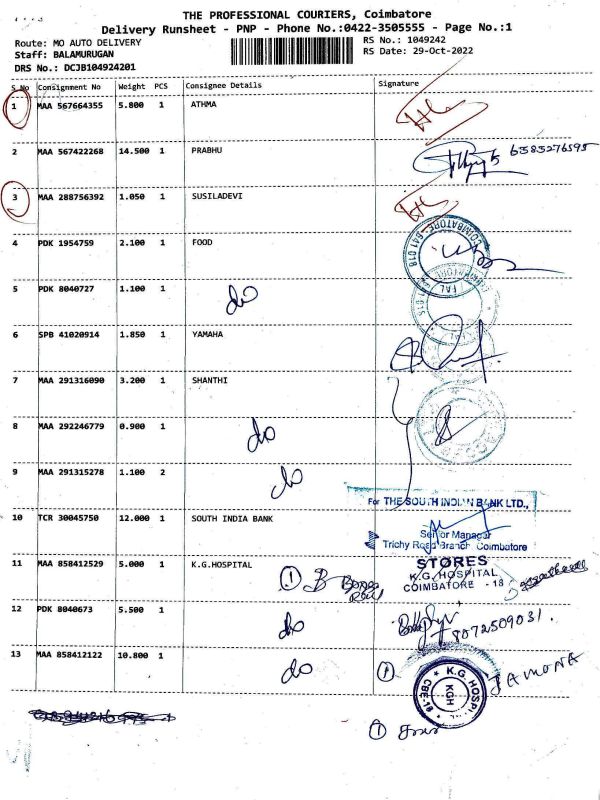 THE PROFESSIONAL COURIERS, Coimbatore
Delivery Runsheet - PNP - Phone No.:0422-3505555 - Page No.:1
Route: MO AUTO DELIVERY RS No.: 1049242
Staff: BALAMURUGAN RS Date: 29-Oct-2022
DRS No.: DCJB104924201
S No Consignment No Weight PCS Consignee Details Signature
1 MAA 567664355 5.800 1 ATHMA
2 MAA 567422268 14.500 1 PRABHU 6585276595
3 MAA 288756392 1.050 1 SUSILADEVI
4 PDK 1954759 2.100 1 FOOD
COIMBATORE-641 018
5 PDK 8040727 1.100 1 do
6 SPB 41020914 1.850 1 YAMAHA
7 MAA 291316090 3.200 1 SHANTHI
8 MAA 292246779 0.900 1 do
9 MAA 291315278 1.100 2 do
For THE SOUTH INDIAN BANK LTD.,
10 TCR 30045750 12.000 1 SOUTH INDIA BANK
Senior Manager
Trichy Road Branch, Coimbatore
11 MAA 858412529 5.000 1 K.G.HOSPITAL 1
STORES
K.G. HOSPITAL
COIMBATORE - 18
12 PDK 8040673 5.500 1 do
8072509031.
13 MAA 858412122 10.800 1 do 1
K.G. HOSPITAL
CBE-18
KGH
JAMONA
1